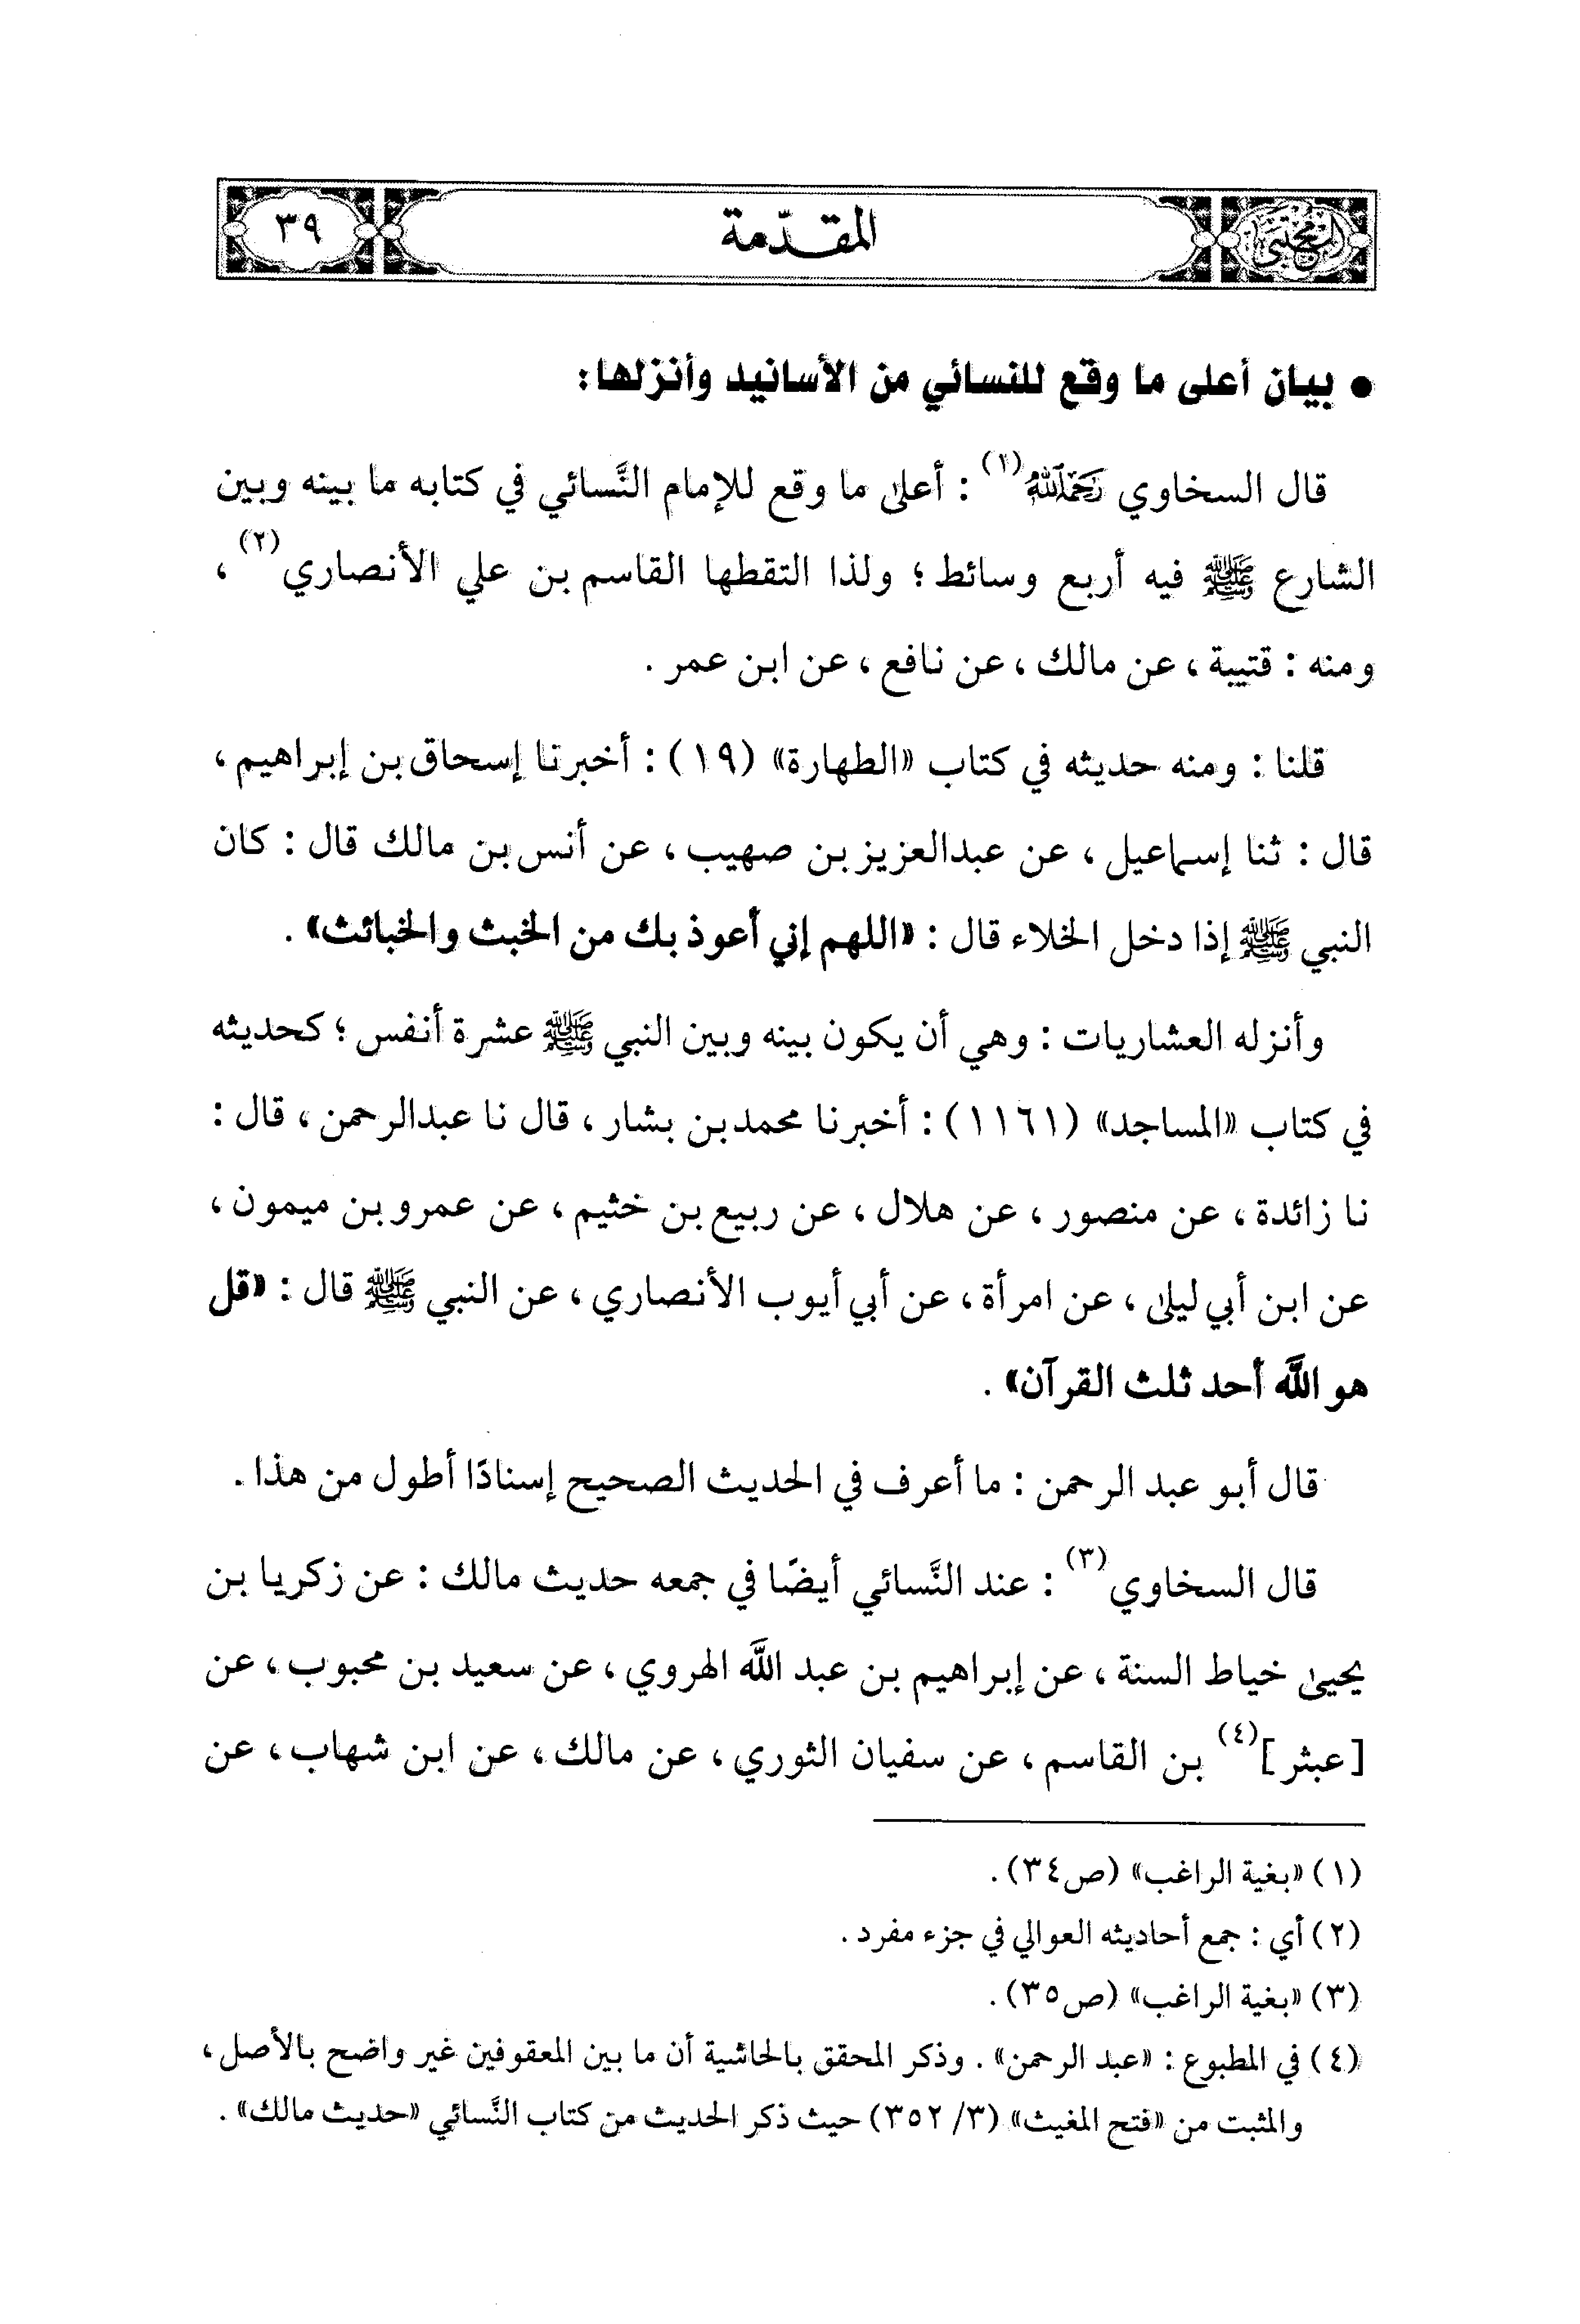 المجتبى
المقدّمة
٣٩
● بيان أعلى ما وقع للنسائي من الأسانيد وأنزلها:
قال السخاوي رحمه الله(١) : أعلى ما وقع للإمام النَّسائي في كتابه ما بينه وبين
الشارع ﷺ فيه أربع وسائط ؛ ولذا التقطها القاسم بن علي الأنصاري(٢) ،
ومنه : قتيبة ، عن مالك ، عن نافع ، عن ابن عمر .
قلنا : ومنه حديثه في كتاب «الطهارة» (١٩) : أخبرنا إسحاق بن إبراهيم ،
قال : ثنا إسماعيل ، عن عبدالعزيز بن صهيب ، عن أنس بن مالك قال : كان
النبي ﷺ إذا دخل الخلاء قال : «اللهم إني أعوذ بك من الخبث والخبائث» .
وأنزله العشاريات : وهي أن يكون بينه وبين النبي ﷺ عشرة أنفس ؛ كحديثه
في كتاب «المساجد» (١١٦١) : أخبرنا محمد بن بشار ، قال نا عبدالرحمن ، قال :
نا زائدة ، عن منصور ، عن هلال ، عن ربيع بن خثيم ، عن عمرو بن ميمون ،
عن ابن أبي ليلى ، عن امرأة ، عن أبي أيوب الأنصاري ، عن النبي ﷺ قال : «قل
هو اللَّه أحد ثلث القرآن» .
قال أبو عبد الرحمن : ما أعرف في الحديث الصحيح إسنادًا أطول من هذا .
قال السخاوي(٣) : عند النَّسائي أيضًا في جمعه حديث مالك : عن زكريا بن
يحيى خياط السنة ، عن إبراهيم بن عبد اللَّه الهروي ، عن سعيد بن محبوب ، عن
[عبثر](٤) بن القاسم ، عن سفيان الثوري ، عن مالك ، عن ابن شهاب ، عن
(١) «بغية الراغب» (ص٣٤) .
(٢) أي : جمع أحاديثه العوالي في جزء مفرد .
(٣) «بغية الراغب» (ص٣٥) .
(٤) في المطبوع : «عبد الرحمن» . وذكر المحقق بالحاشية أن ما بين المعقوفين غير واضح بالأصل ،
والمثبت من «فتح المغيث» (٣/ ٣٥٢) حيث ذكر الحديث من كتاب النَّسائي «حديث مالك» .